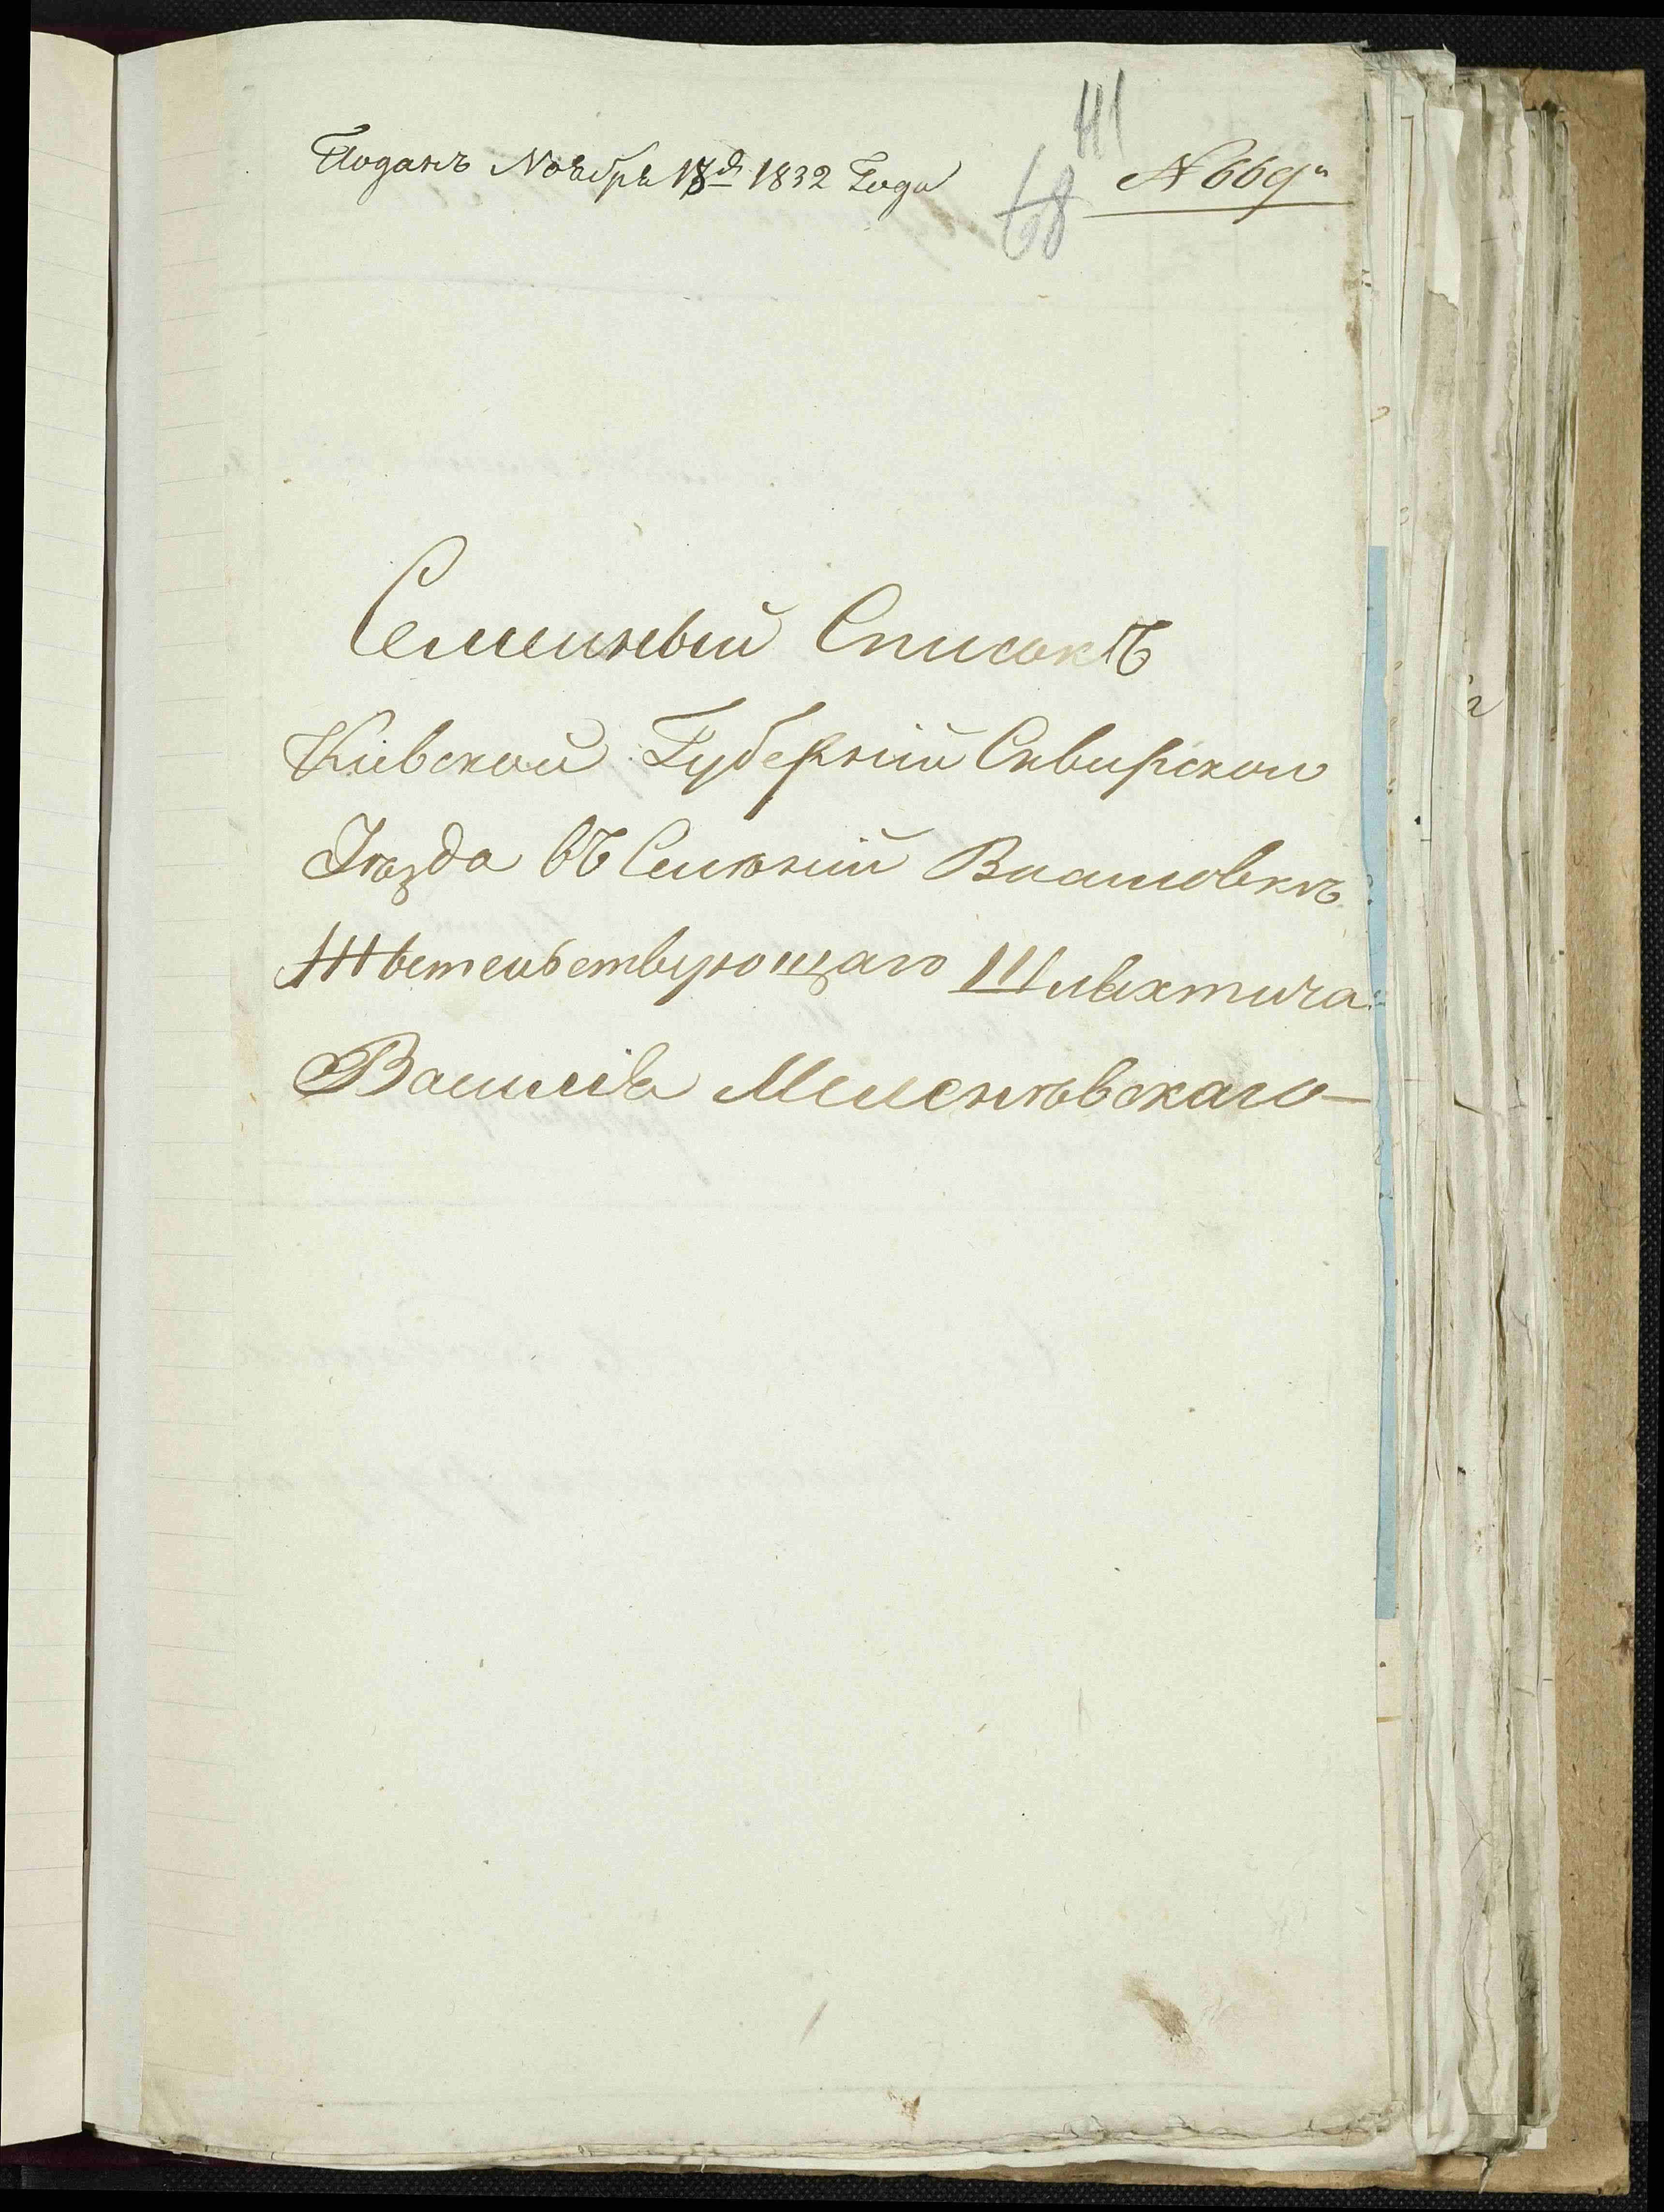 Поданъ Ноября 13д 1832 Года
41
68
N 669"
Семейный Списокъ
Кіевской Губерніи Сквирскои
Уѣзда въ Селѣніи Власовкѣ
Жительствующаго Шляхтича
Василія Меленѣвскаго